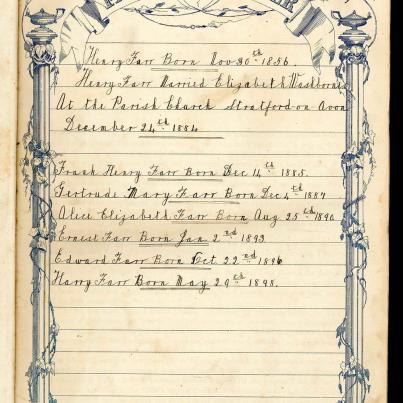 Henry Farr Born Nov 30th 1856.
Henry Farr Married Elizabeth Washborne
At the Parish Church Stratford on Avon
December 24th 1884
Frank Henry Farr Born Dec 14th 1885.
Gertrude Mary Farr Born Dec 4th 1887
Alice Elizabeth Farr Born Aug 25th 1890
Ernest Farr Born Jan 2nd 1893
Edward Farr Born Oct 22nd 1896
Harry Farr Born May 29th 1898.